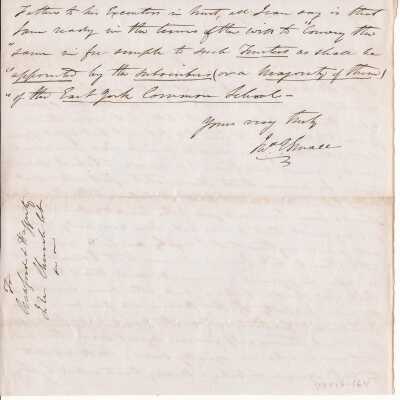 Father to his Executors in trust, all I can say is that
I am ready in the terms of the will to "Convey the
"same in fee simple to such Trustees as shall be
"appointed by the subscribers (or a Majority of them)
"of the East York Common School –
Yours very truly
Jno Small
To
&